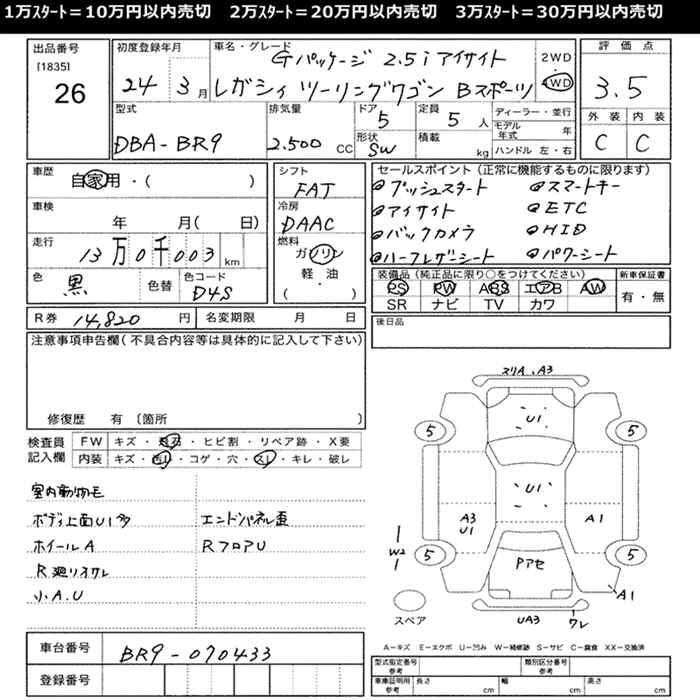 1万ｽﾀｰﾄ＝10万円以内売切　2万ｽﾀｰﾄ＝20万円以内売切　3万ｽﾀｰﾄ＝30万円以内売切
出品番号
[1835]
26
初度登録年月
24 年 3 月
車名・グレード
Gパッケージ 2.5i アイサイト
レガシィ ツーリングワゴン Bスポーツ
2WD
4WD
評価点
3.5
外装 内装
C C
型式
DBA-BR9
排気量
2.500 CC
ドア
5
形状
SW
定員
5 人
積載
kg
ディーラー・並行
モデル年式 年
ハンドル 左・右
車歴
自家用・( )
車検
年 月( 日)
走行
13万0千003 km
色
黒
色替
色コード
D4S
シフト
FAT
冷房
DAAC
燃料
ガソリン
軽・油
( )
セールスポイント(正常に機能するものに限ります)
プッシュスタート スマートキー
アイサイト ETC
バックカメラ HID
ハーフレザーシート パワーシート
装備品(純正品に限り○をつけてください)
PS PW ABS エアB AW
SR ナビ TV カワ
新車保証書
有・無
R券 14,820 円
名変期限 月 日
後日品
注意事項申告欄(不具合内容等は具体的に記入して下さい)
修復歴 有 〔箇所 〕
検査員
記入欄
FW キズ・飛石・ヒビ割・リペア跡・X要
内装 キズ・汚レ・コゲ・穴・スレ・キレ・破レ
室内動物毛
ボディ上面U1多 エンドパネル歪
ホイールA RフロアU
R廻りオクレ
小A.U
スリA、A3
U1
5 5
U1
A3
U1
A1
W2
5 5
Pアセ
A1
スペア
UA3 ワレ
A－キズ E－エクボ U－凹み W－補修跡 S－サビ C－腐食 XX－交換済
車台番号
BR9-070433
登録番号
型式指定番号
参考
類別区分番号
参考
車庫証明用
参考
長さ cm
幅 cm
高さ cm